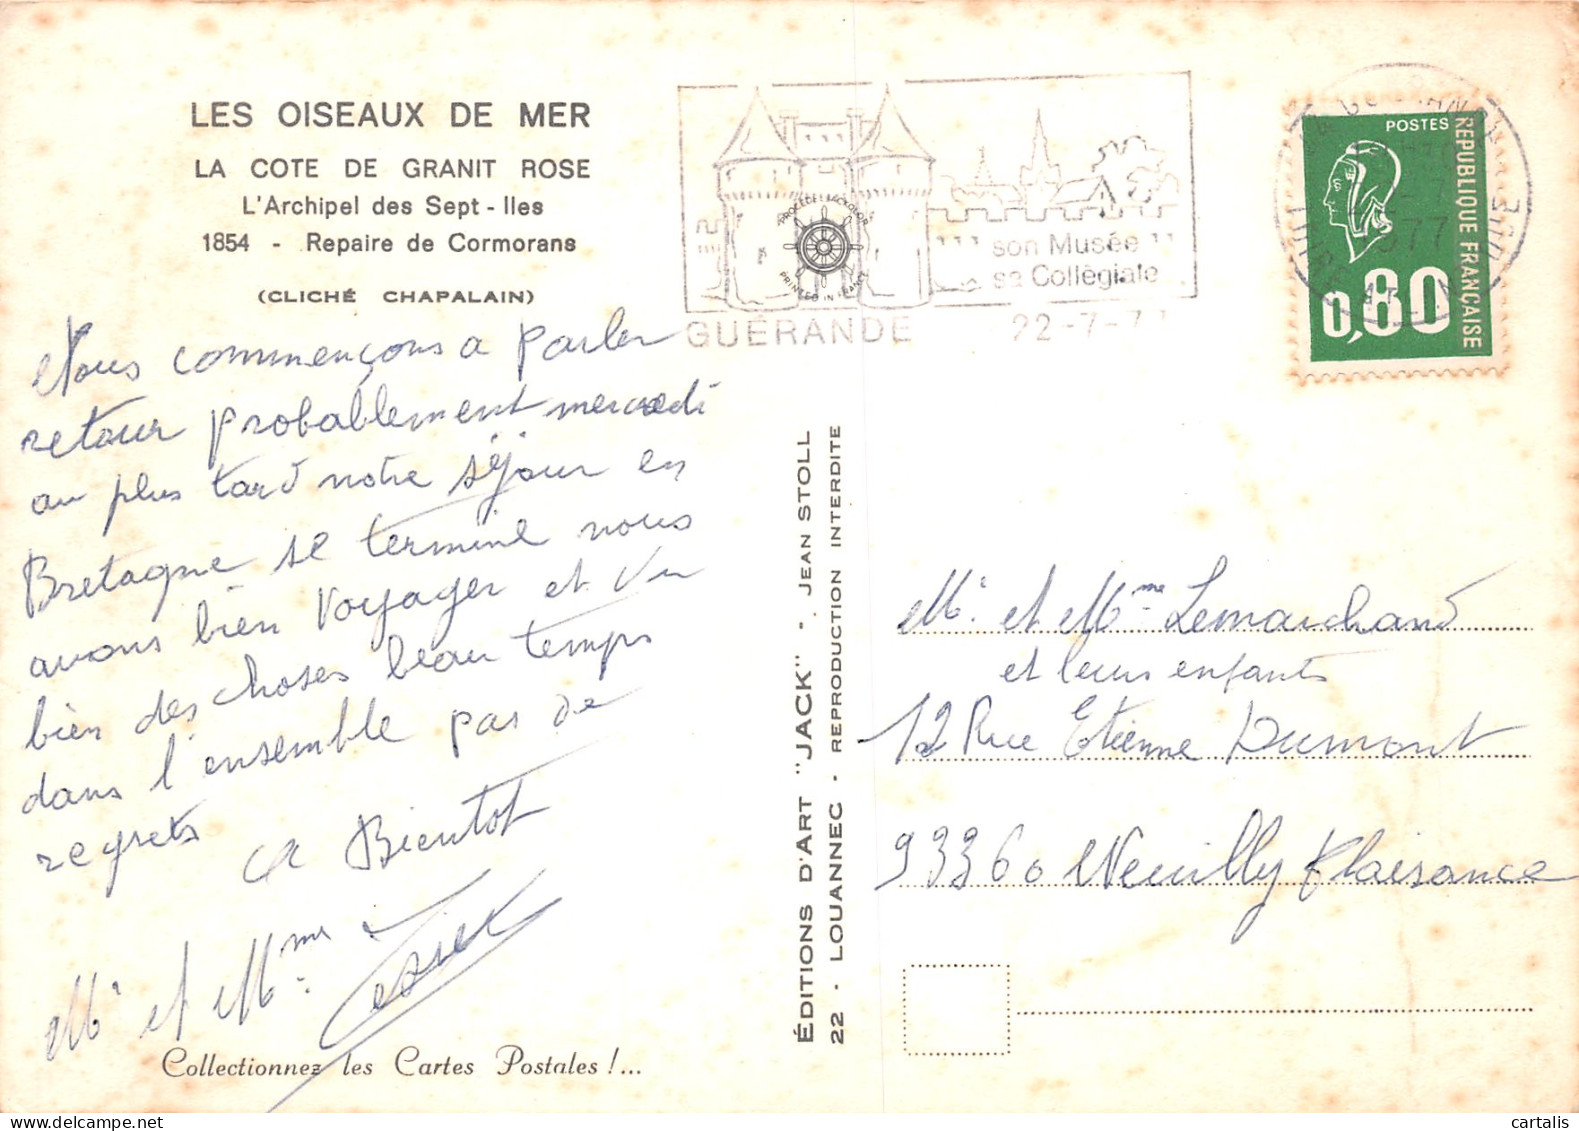 LES OISEAUX DE MER
LA COTE DE GRANIT ROSE
L'Archipel des Sept - Iles
1854 - Repaire de Cormorans
(CLICHÉ CHAPALAIN)
Nous commençons a parler
retour probablement mercredi
au plus tard notre séjour en
Bretagne se termine nous
avons bien voyager et vu
bien des choses beau temps
dans l'ensemble pas de
regrets
a Bientot
Mr et Mme
Collectionnez les Cartes Postales !...
ÉDITIONS D'ART "JACK" - JEAN STOLL
22 - LOUANNEC - REPRODUCTION INTERDITE
PROCÉDÉ JACKOLOR
PRINTED IN FRANCE
son Musée
sa Collégiale
GUÉRANDE 22-7-77
1977
LOIRE
POSTES
REPUBLIQUE FRANÇAISE
0,80
Mr et Mme Lemarchand
et leurs enfants
12 Rue Etienne Dumont
93360 Neuilly Plaisance
cartalis